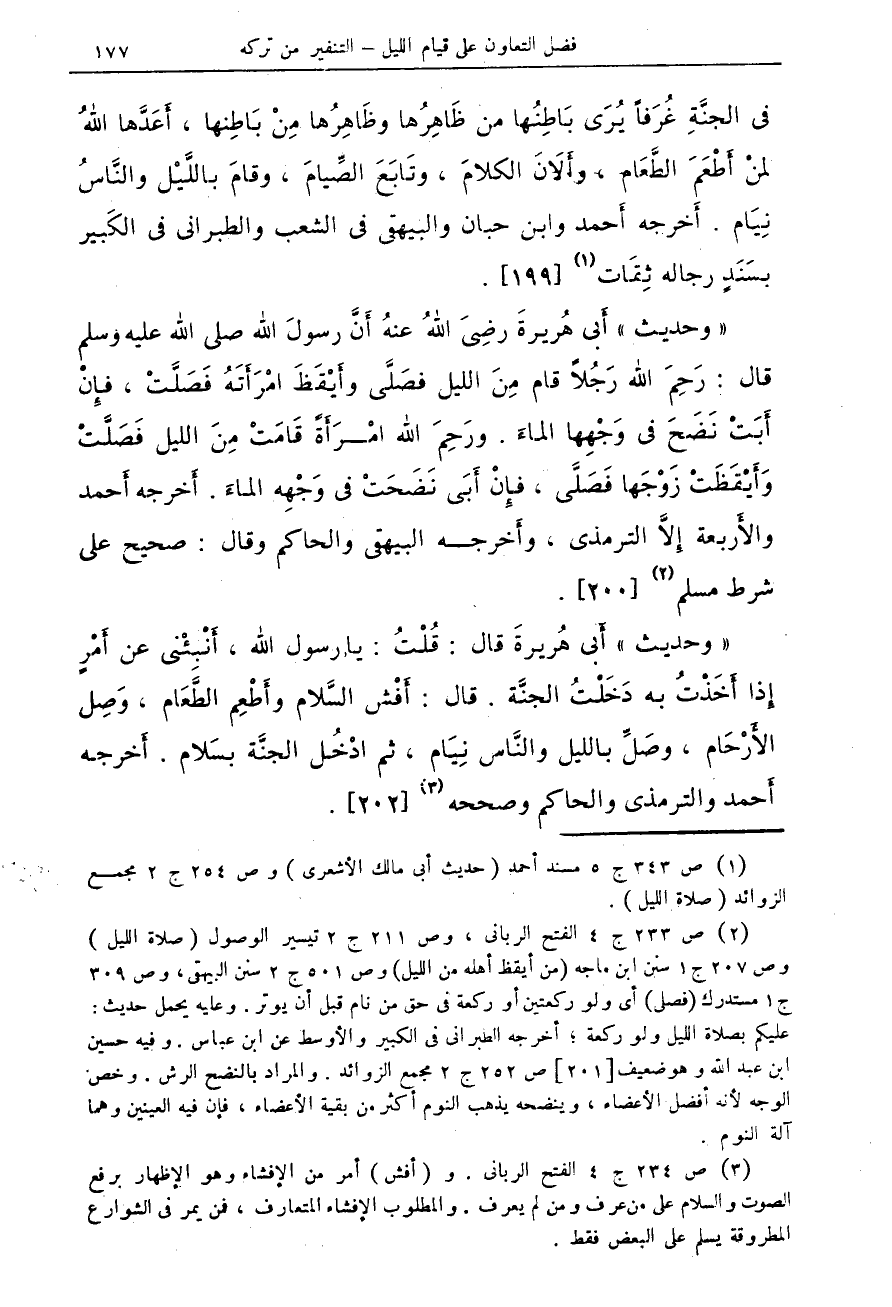 فضل التعاون على قيام الليل – التنفير من تركه ١٧٧
فى الجنَّةِ غُرَفاً يُرَى بَاطِنُها من ظَاهِرُها وظَاهِرُها مِنْ بَاطِنها ، أَعَدَّها اللهُ
لمنْ أَطْعَمَ الطَّعَام ، وأَلَانَ الكلامَ ، وتَابَعَ الصِّيامَ ، وقامَ بـاللَّيْل والنَّاسُ
نِيَام . أخرجه أحمد وابن حبان والبيهقى فى الشعب والطبرانى فى الكبير
بسَنَدٍ رجاله ثِقَات(١) [١٩٩] .
« وحديث » أبى هُريرةَ رضِىَ اللهُ عنهُ أنَّ رسولَ الله صلى الله عليه وسلم
قال : رَحِمَ الله رَجُلاً قام مِنَ الليل فصَلَّى وأَيْقَظَ امْرَأَتَهُ فَصَلَّتْ ، فـإنْ
أَبَتْ نَضَحَ فى وَجْهِها الماءَ . ورَحِمَ الله امْـرَأَةً قَامَتْ مِنَ الليل فَصَلَّتْ
وَأَيْقَظَتْ زَوْجَها فَصَلَّى ، فـإنْ أَبَى نَضَحَتْ فى وَجْهِه الماءَ . أخرجه أحمد
والأَربعة إلاَّ الترمذى ، وأخرجـه البيهقى والحاكم وقال : صحيح على
شرط مسلم(٢) [٢٠٠] .
« وحديث » أبى هُريرةَ قال : قُلْتُ : يا رسول الله ، أَنْبِئْنى عن أَمْرٍ
إذا أَخَذْتُ به دَخَلْتُ الجنَّة . قال : أَفْش السَّلام وأَطْعِم الطَّعَام ، وَصِل
الأَرْحَام ، وصَلِّ بـالليل والنَّاس نِيَام ، ثم ادْخُـل الجنَّة بسَلام . أخرجـه
أحمد والترمذى والحاكم وصححه(٣) [٢٠٢] .
(١) ص ٣٤٣ ج ٥ مسند أحمد ( حديث أبى مالك الأشعرى ) و ص ٢٥٤ ج ٢ مجمع
الزوائد ( صلاة الليل ) .
(٢) ص ٢٣٣ ج ٤ الفتح الربانى ، وص ٢١١ ج ٢ تيسير الوصول ( صلاة الليل )
وص ٢٠٧ ج١ سنن ابن ماجه (من أيقظ أهله من الليل) وص ٥٠١ ج ٢ سنن البيهقى، وص ٣٠٩
ج١ مستدرك (فصلى) أى ولو ركعتين أو ركعة فى حق من نام قبل أن يوتر . وعليه يحمل حديث :
عليكم بصلاة الليل ولو ركعة ؛ أخرجه الطبرانى فى الكبير والأوسط عن ابن عباس . وفيه حسين
ابن عبد الله وهو ضعيف [٢٠١] ص ٢٥٢ ج ٢ مجمع الزوائد . والمراد بالنضح الرش . وخص
الوجه لأنه أفضل الأعضاء ، وبنضحه يذهب النوم أكثر من بقية الأعضاء ، فإن فيه العينين وهما
آلة النوم .
(٣) ص ٢٣٤ ج ٤ الفتح الربانى . و ( أفش ) أمر من الإفشاء وهو الإظهار برفع
الصوت والسلام على من عرف ومن لم يعرف . والمطلوب الإفشاء المتعارف ، فمن يمر فى الشوارع
المطروقة يسلم على البعض فقط .